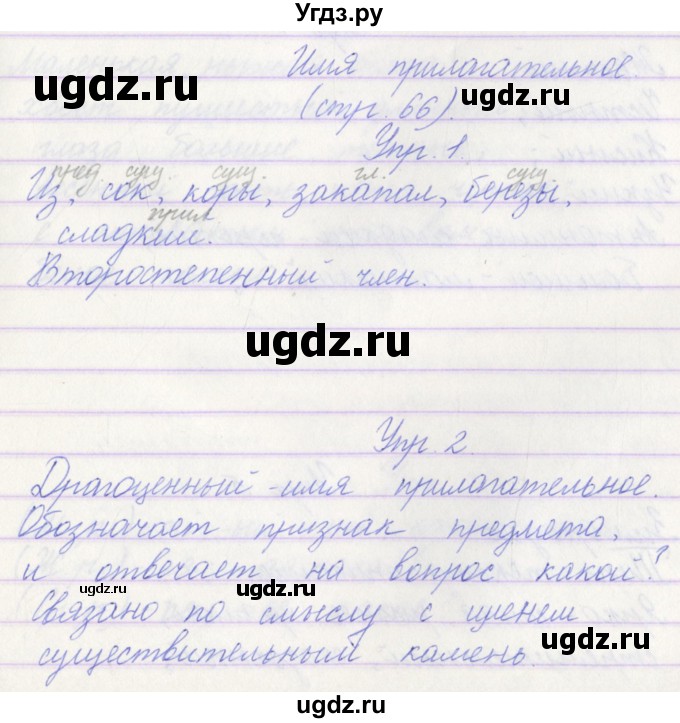 Угдз.ру
Имя прилагательное.
ugdz.ru
ugdz.ru
(стр. 66).
Упр. 1.
пред. сущ. сущ. гл. сущ.
Из, сок, коры, закапал, березы,
прил.
сладкий.
Второстепенный член.
ugdz.ru
Упр. 2.
Драгоценный - имя прилагательное.
Обозначает признак предмета,
и отвечает на вопрос какой?
ugdz.ru
Связано по смыслу с именем
ugdz.ru
существительным камень.
ugdz.ru